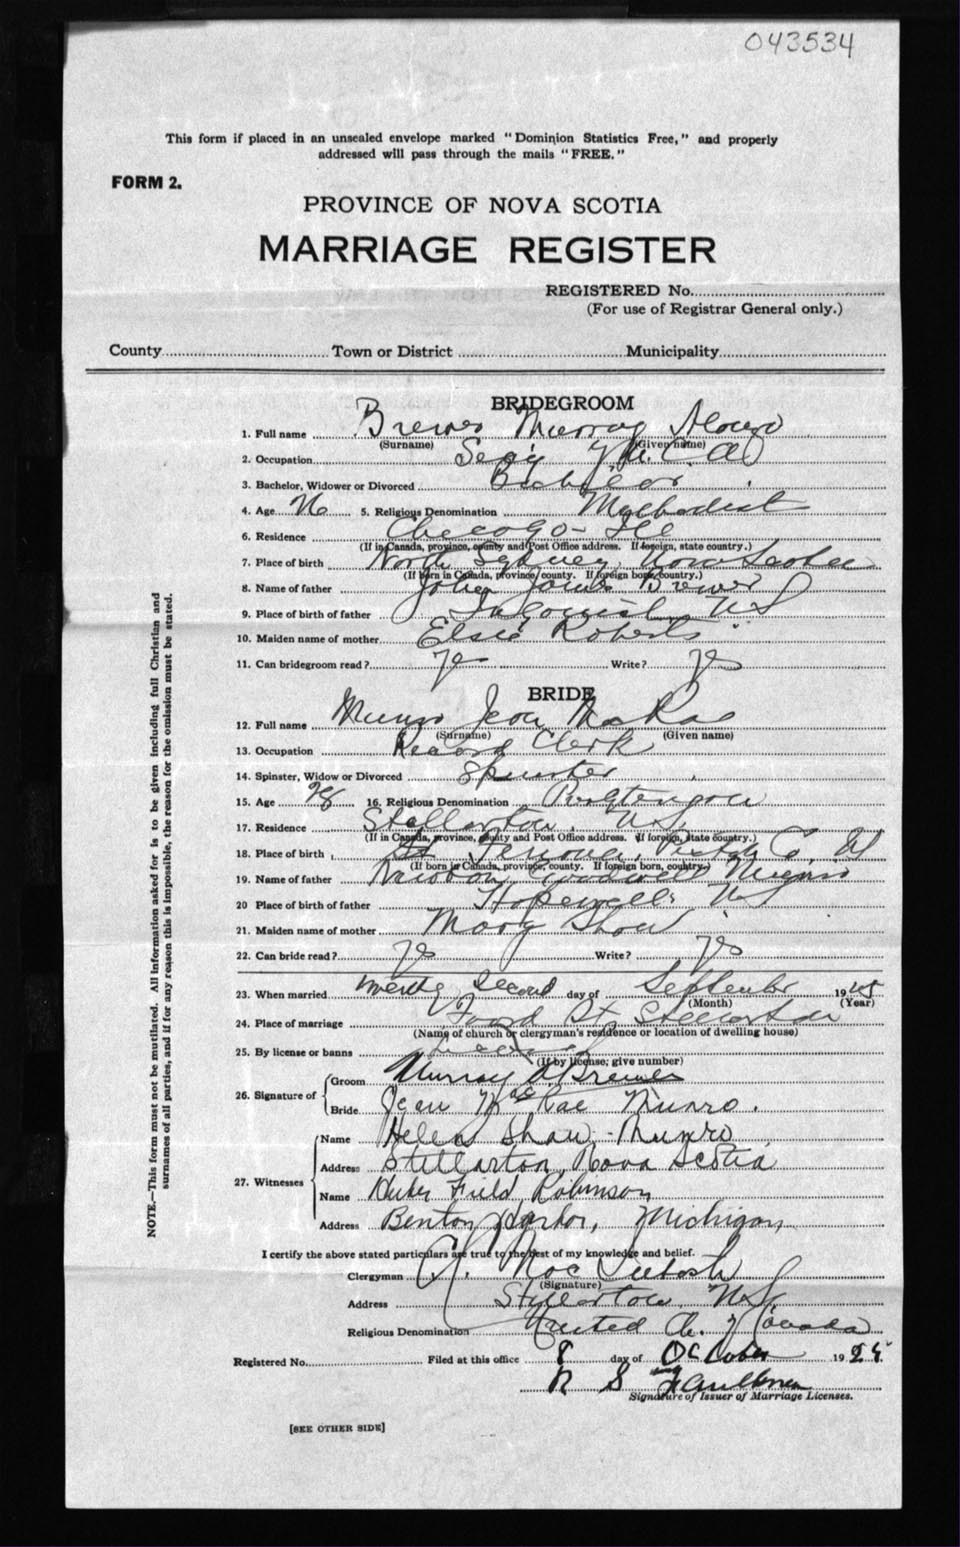 043534
This form if placed in an unsealed envelope marked "Dominion Statistics Free," and properly
addressed will pass through the mails "FREE."
FORM 2.
PROVINCE OF NOVA SCOTIA
MARRIAGE REGISTER
REGISTERED No.
(For use of Registrar General only.)
County Town or District Municipality
BRIDEGROOM
1. Full name Brewer Murray
(Surname) (Given name)
2. Occupation Secy Y.M.C.A.
3. Bachelor, Widower or Divorced Bachelor
4. Age 5. Religious Denomination Methodist
6. Residence Chicago - Ill
(If in Canada, province, county and Post Office address. If foreign, state country.)
7. Place of birth North Sydney, Nova Scotia
(If born in Canada, province, county. If foreign born, country.)
8. Name of father John Brewer
9. Place of birth of father NS
10. Maiden name of mother Elsie Roberts
11. Can bridegroom read? yes Write? yes
BRIDE
12. Full name Munro Jean MacRae
(Surname) (Given name)
13. Occupation Record Clerk
14. Spinster, Widow or Divorced Spinster
15. Age 28 16. Religious Denomination
17. Residence Stellarton, N.S.
(If in Canada, province, county and Post Office address. If foreign, state country.)
18. Place of birth Pictou Co, NS
(If born in Canada, province, county. If foreign born, country)
19. Name of father Munro
20 Place of birth of father Hopewell, NS
21. Maiden name of mother Mary Shaw
22. Can bride read? yes Write? yes
23. When married twenty second day of September 1925
(Month) (Year)
24. Place of marriage Foord St Stellarton
(Name of church or clergyman's residence or location of dwelling house)
25. By license or banns License
(If by license, give number)
26. Signature of
Groom Murray A Brewer
Bride Jean MacRae Munro.
27. Witnesses
Name Helen Shaw Munro
Address Stellarton, Nova Scotia
Name Field Robinson
Address Benton Harbor, Michigan
I certify the above stated particulars are true to the best of my knowledge and belief.
Clergyman MacIntosh
(Signature)
Address Stellarton, N.S.
Religious Denomination United Ch. of Canada
Registered No. Filed at this office 8 day of October 1925.
N S Faulkner
Signature of Issuer of Marriage Licenses.
[SEE OTHER SIDE]
NOTE.—This form must not be mutilated. All information asked for is to be given including full Christian and
surnames of all parties, and if for any reason this is impossible, the reason for the omission must be stated.